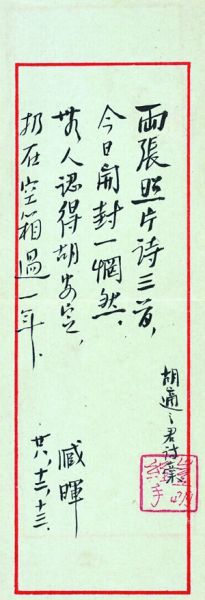 兩張照片詩三首,
今日開封一惘然.
無人認得胡安定,
扔在空箱過一年.
臧暉
廿八,十二,十三.
胡適之君詩